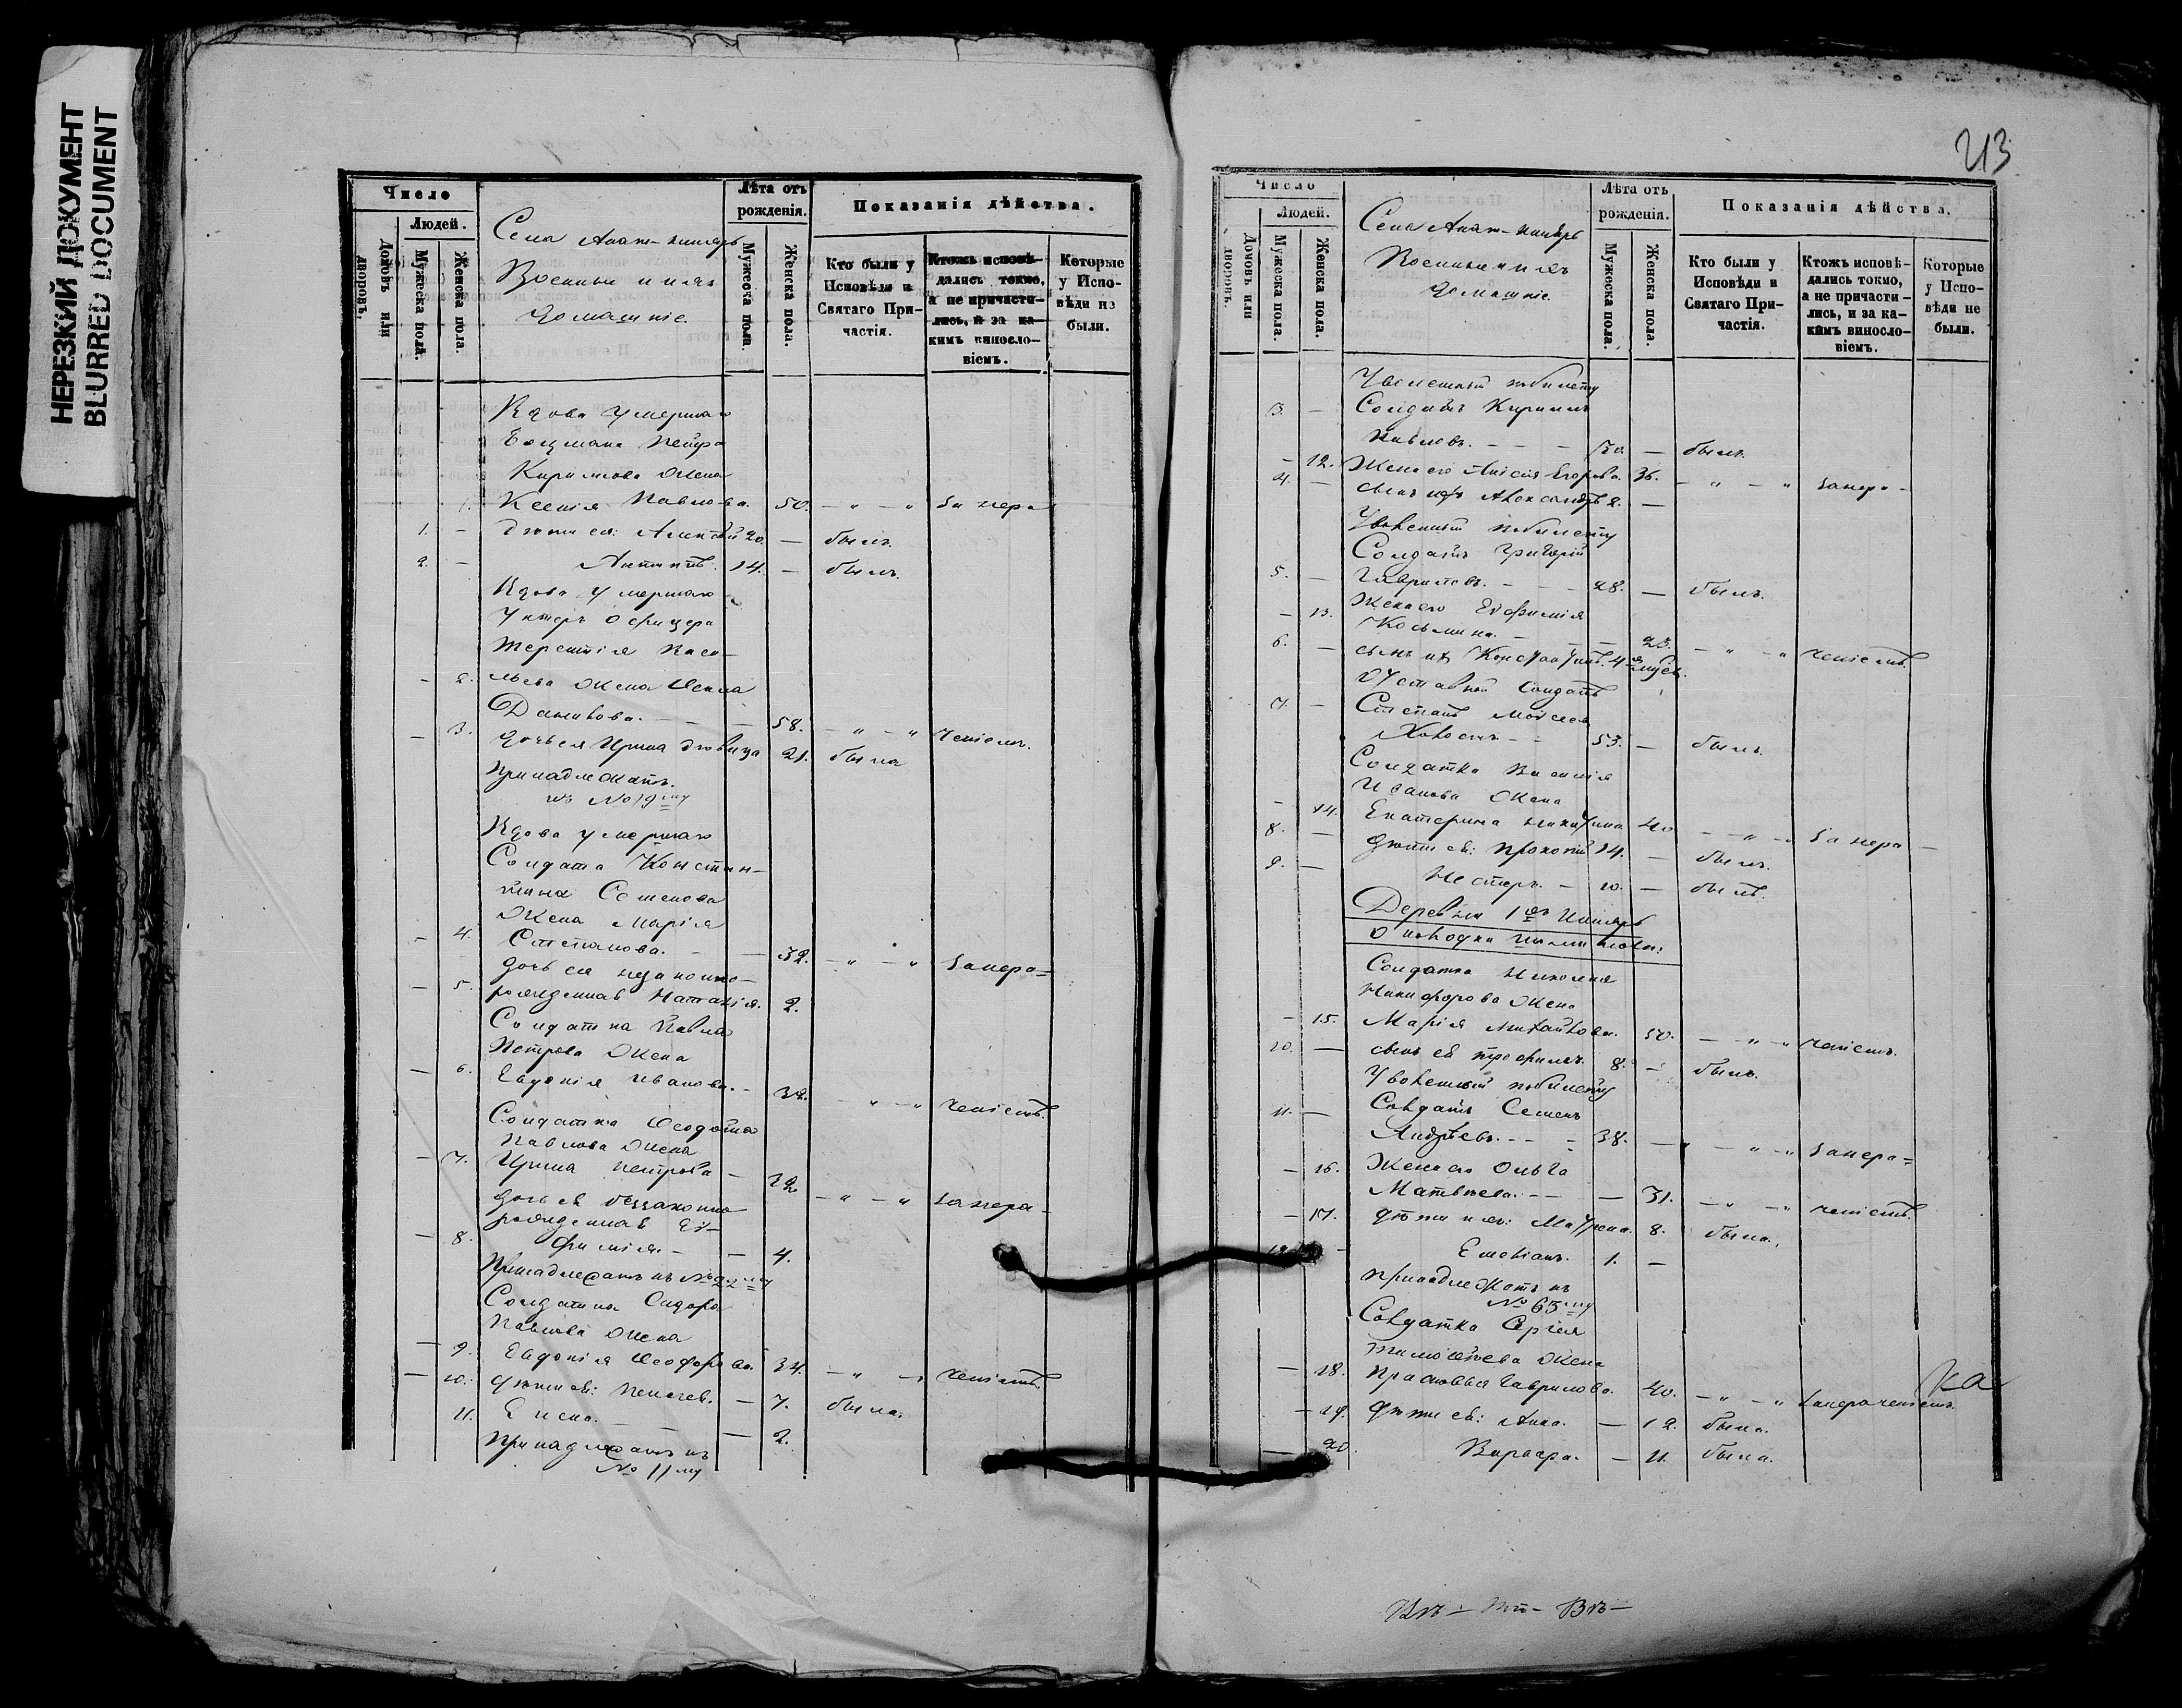 НЕРЕЗКИЙ ДОКУМЕНТ
BLURRED DOCUMENT
Число
Людей.
Домовъ или дворовъ.
Мужеска пола.
Женска пола.
Села Анат-киняръ
Военные и ихъ
домашніе.
Лѣта отъ рожденія.
Мужеска пола.
Женска пола.
Показанія дѣйства.
Кто были у Исповѣди и Святаго Причастія.
Ктожъ исповѣдались токмо, а не причастились, и за какимъ винословіемъ.
Которые у Исповѣди не были.
Вдова умершаго
Боцмана Петра
Кирилова жена
1. Ксенія Павлова. 50. – „ – „ за нера
1. – дѣти ея: Алексѣй 20. – былъ.
2. – Антипъ. 14. – былъ.
Вдова умершаго
Унтеръ офицера
Терентія Васи–
– 2. льева жена
Данилова. – – 58. – „ – „ ченіемъ.
– 3. дочь ея Ирина дѣвица 21. была
Принадлежатъ.
къ № 19му
Вдова умершаго
Солдата Констан–
тина Семенова
жена Марія
– 4. Степанова. – – 32. – „ – „ за нера=
дочь ея незаконно–
– 5. рожденная Наталія. 2.
Солдатка Павла
Петрова жена
– 6. Евдокія Иванова. – 32. – „ – „ ченіемъ.
Солдатка Ѳеодота
Павлова жена
– 7. Ирина Петрова – 32 – „ – „ за нера–
дочь ея беззаконно
рожденная Ев–
– 8. фимія. – – 4.
Принадлежатъ къ № 22му
Солдатка Сидора
Павлова жена
– 9. Евдокія Ѳеодорова. 34. – „ – „ ченіемъ.
– 10. дѣти ея: Пелагея. – 7. была.
11. Елена. – – 2.
Принадлежатъ къ
№ 11му
213
Число
Людей.
Домовъ или дворовъ.
Мужеска пола.
Женска пола.
Села Анат-киняръ
Военные и ихъ
домашніе.
Лѣта отъ рожденія.
Мужеска пола.
Женска пола.
Показанія дѣйства.
Кто были у Исповѣди и Святаго Причастія.
Ктожъ исповѣдались токмо, а не причастились, и за какимъ винословіемъ.
Которые у Исповѣди не были.
Уволенный по билету
3. – Солдатъ Кириллъ
Павловъ. – – – 50. – былъ.
– 12. Жена его Анисія Егорова. 36. – „ – „ за нера–
4. – сынъ ихъ Александръ 2. –
Уволенный по билету
Солдатъ Григорій
5. – Гавриловъ. – – – 28. – былъ.
– 13. Жена его Евфимія
Козьмина. – – – 23. – „ – „ ченіемъ.
6. – сынъ ихъ Константинъ. 4
Отставной солдатъ
7. – Степанъ Моисеев
53. – былъ.
Солдатка Василія
Иванова жена
– 14. Екатерина Никитина 40 – „ – за нера–
8. – дѣти ея: Прокопій 14. – былъ.
9. – Нестеръ. – 10. – былъ.
Деревни 1хъ Киняръ
Солдатка Николая
Никифорова жена
– 15. Марія Михайлова. 50. – „ – „ ченіемъ.
10. – сынъ ея Трофимъ. 8. – былъ.
Уволенный по билету
11. – Солдатъ Семенъ
Андрѣевъ. – – – 38. – – „ – „ за нера=
– 16. Жена его Ольга
Матвѣева. – – – 31. – „ – „ ченіемъ.
– 17. дѣти ихъ: Матрена. 8. была.
12 – Емеліанъ. 1. –
Принадлежатъ къ
№ 65му
Солдатка Сергія
Тимоѳеева жена
– 18. Прасковья Гаврилова. 40. – „ – „ за нераченіемъ.
– 19. дѣти ея: Анна. – 12. была.
– 20. Варвара. – 11. была.
ка